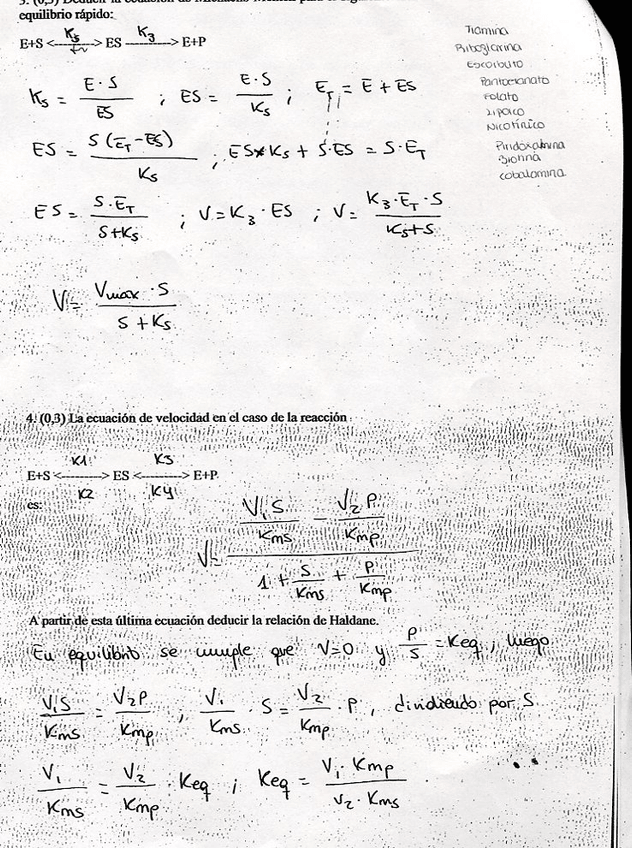 equilibrio rápido:
Ks K3
E+S <----------> ES ----------> E+P
Ks = E · S / ES ; ES = E · S / Ks ; ET = E + ES
ES = S (ET - ES) / Ks ; ES * Ks + S · ES = S · ET
ES = S · ET / S + Ks ; V = K3 · ES ; V = K3 · ET · S / Ks + S
V = Vmax · S / S + Ks
Tiamina
Riboflavina
Escorbuto
Pantotenato
Folato
Lipoico
Nicotínico
Piridoxamina
Biotina
cobalamina
4. (0,3) La ecuación de velocidad en el caso de la reacción
K1 K3
E+S <----------> ES <----------> E+P
K2 K4
es:
V = (V1 S / Kms - V2 P / Kmp) / (1 + S / Kms + P / Kmp)
A partir de esta última ecuación deducir la relación de Haldane.
En equilibrio se cumple que V=0 y P / S = Keq, luego
V1 S / Kms = V2 P / Kmp ; V1 / Kms · S = V2 / Kmp · P, dividiendo por S
V1 / Kms = V2 / Kmp · Keq ; Keq = V1 · Kmp / V2 · Kms